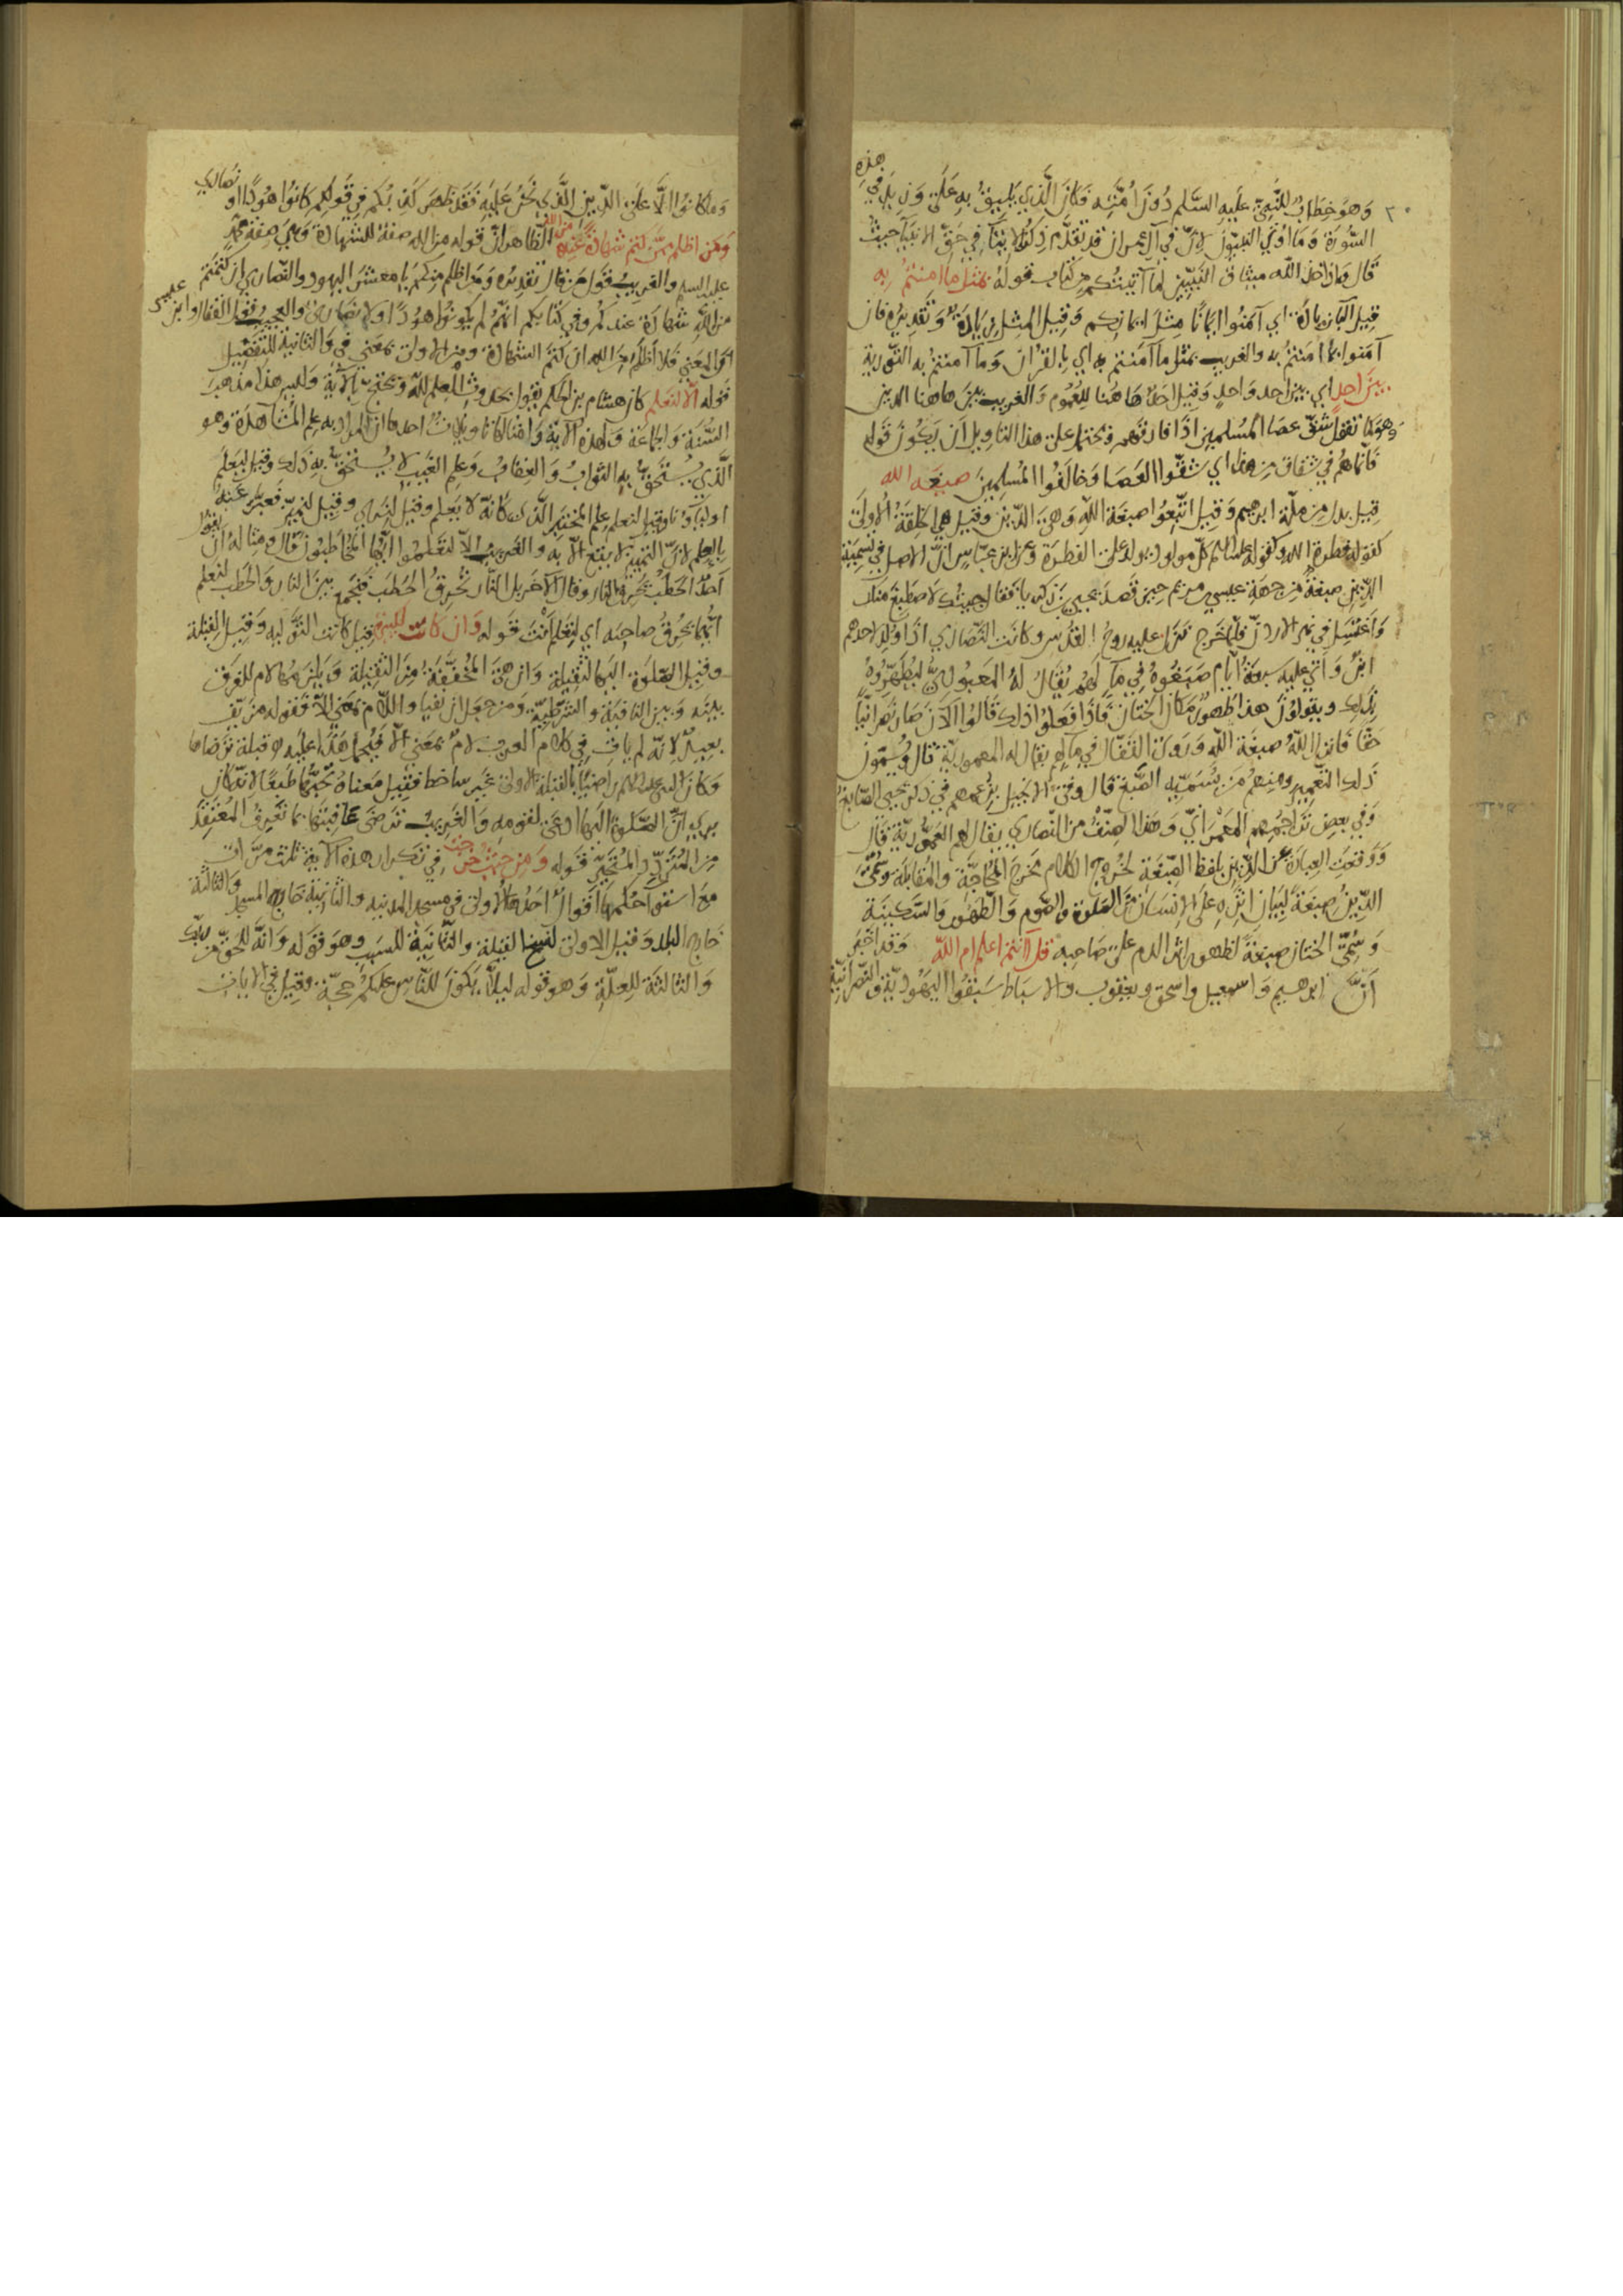 ٣٠
وَهوَ خِطَابٌ للنَّبِيّ عليهِ السَّلم دُونَ أُمّتِه فكانَ الَّذي يليقُ به عَلَى وَنزيد في هذِهِ
السُّورَة وَمَا أوتي النبيّونَ لانّ في آل عمران قد تقدّم ذكر الانبيَآء حيثُ
قَال وَاذ اخذ الله ميثاق النّبيّين لمَا آتيتُكم من كتَاب قولهُ بمثل ما امنتمُ بِه
قِيل البَآء زيادَة اي آمَنُوا ايمَانًا مِثلَ ايمانِكم وَقيل المِثل زيَادَة وَتقديرُه فان
آمَنوا بمَا امنتمُ به والغريب بمثل مَا آمَنتم به اي بِالقرآن وَمَا آمنتمُ به التّورية
بينَ احدٍ اي بينَ احد وَاحدٍ وَقيل احَد هَاهُنا للِعُمُوم وَالغريب بينَ هاهنا الدين
وَهوَ كمَا تقول شقّ عصَا المُسلمين اذَا فارقهم ويحتمل على هذا التاويل اَن يَكونَ قوله
فَانما همُ في شقاق من هذا اي شَقّوا العَصَا وَخالَفُوا المُسلِمينَ صبغَة الله
قِيل بدل من ملّة ابرهيم وَقيل اتّبِعُوا صبغَة اللهِ وَهيَ الدّين وَقيل هي الخلقَة الأولَى
كقوله فطرة الله وكقوله عليه السلم كلّ مولود يولد على الفطرَة وَعن ابن عبّاس انّ الاصل في تسميَة
الدّين صبغةً من جهَة عيسى بن مريم حِينَ قصَدَ يحيى بن زكريا فقال جيتُك لاصطبغَ منك
وَاغتسِل في نهر الاردنّ فلمّا خَرج نَزل عليه روحُ القدُس وكانت النّصَارى اذا وُلد لاحدهم
ابنٌ وَاتى عليه سبعَة ايّام صَبَغوهُ في مَآءٍ لهم يُقَالُ لهُ المَعبُوديّ ليُطهّرُوهُ
بِذلِك ويقولونَ هذا طُهورٌ مَكان الختان فَاذَا فَعلوا ذلك قَالُوا الآنَ صَارَ نصرانيًّا
حَقًّا فانزل اللهُ صبغَة اللهِ وَرَوى القفّال في مآءٍ لهم يقال له المعموديّة قال وُيسمّون
ذَلك التّعميد ومنهمُ مَن يُسَمّيه الصّبغَة قال وَفى الانجيل بزعمهم في ذكر يحيى الصّابغ
وَفي بعض تراجمهم المعمرَانيّ وَهذا الصِنّفُ من النّصارى يقال لهم العموديّة قال
وَوقعَتِ العبارَة عن الدّين بلفظ الصّبغَة لخُروج الكلام مَخرَج المُحاجَّة وَالمقابلَة وَسُمّيَ
الدّينُ صبغَةً لبَيان اثَرِه على الانسَان من الصَلوة والصّوم وَالطّهُور وَالسَّكينَة
وَسُمّيَ الختان صبغَةً لظهور اثر الدم على صَاحبِه قل أأنتم اعلم ام اللّه وَقد اخبَر
اَنّ ابرهيم وَاسمعيل وَاسحق ويعقوب والاسبَاط سَبَقوا اليَهُوديّة والنّصرانيّة
وَمَا كَانوا الّا عَلَى الدّين الَّذي نحْنُ عَليه فَقد ظهَرَ كَذبُكم في قَولكم كانوُا هُودًا او نَصَارى
وَمَن اظلم ممّن كتم شَهَادةً عنده من الله الظّاهر انّ قوله من الله صفة للشّهادَة وَهيَ صفة محمّد
عليه السلم والغريب قول مَن قال تقديره وَمن اظلم منكُم يا معشَر اليهود والنّصارى ان كتمتُم
منَ الله شهَادَة عندكم وَفي كتابكم انّهمُ لم يكونوا هُودًا ولا نصَارى والعجيبُ قول القفّال وابن عيسى
انّ المعنى فَلا اَظلَم منَ الله ان كتَم الشهَادة ومن الاولى بمَعنى في وَالثانيَة للتّفضيل
قوله الّا لنعلم كان هشام بن الحكم يقول بحدوث العِلم لله ويحتجّ بِالآية وَلَيس هذا مذهبَ
السُّنّة وَالجماعَة وَلهذهِ الآية وَامثالها تاويلاتٌ احدها انّ المراد به علم المُشَاهدَة وَهو
الَّذي يُستَحقّ به الثوابُ وَالعقابُ وَعلِم الغَيب لا يُستَحَقّ به ذلك وقيل ليعلم
اوليآؤنا وقيل لنعلم علم المختبر الّذى كَانّه لا يَعلم وقيل لنرى وَقيل لنميّز فعبّر عَنهُ
بِالعِلم لانّ التمييز لا يقع الّا به والغريبُ الّا لتَعلمُوا ايّها المخاطبُونَ قال ومثالهُ ان يقول
احدٌ الحطبُ تحرق النّار وقال الآخر بل النّار تحُرقُ الحَطب فنَجمَع بينَ النار وَالحَطب لنعلم
ايّهما يحرُقُ صاحبَه اي لتعلم أنتَ قوله وَان كانت لكبيرة قيل كانت التّولية وَقيل القِبلة
وقيل الصّلوة اليهَا لثقيلة وَان هيَ المُخفّفَة منَ الثقِيلة وَيَلزمهَا لام للفَرق
بينه وَبين النّافية والشرطيّة وَمنَ جعل ان نَفيًا واللّام بمَعنى الّا فقوله مزيّف
بعيدٌ لانّه لم يات في كلَام العرب لامٌ بمَعنى الّا فيُحمَل هَذا عليه قبلة ترضاها
وَكان النبي عليه السلم راضيًا بالقبلة الاولى غَير ساخط فقيل مَعناهُ تحُبّها طَبعًا لانّه كان
يرى انّ الصَّلوة اليها ادعى لقومه وَالغريب ترضَى عَاقبتهَا بما تعَرفُ المعُتَقد
منَ المُتَردّد وَالمُتَحيّر قوله وَمن حيث خرجت في تكرار هذه الآية ثلاث مرّات
مع استوآء حُكمها اقوالٌ احَدُها الاولى في مسجد المدينه والثانيَة خارج المسجد وَالثالثة
خارج البلد وَقيل الاولى لنسخ القبلة والثّانيَة للسَبَب وهوَ قوله وَانّه للحَقّ من ربّك
وَالثالثة للِعِلَّة وَهو قوله ليلّا يَكونَ للنّاس عَليكُم حجّة وقيل في الايات